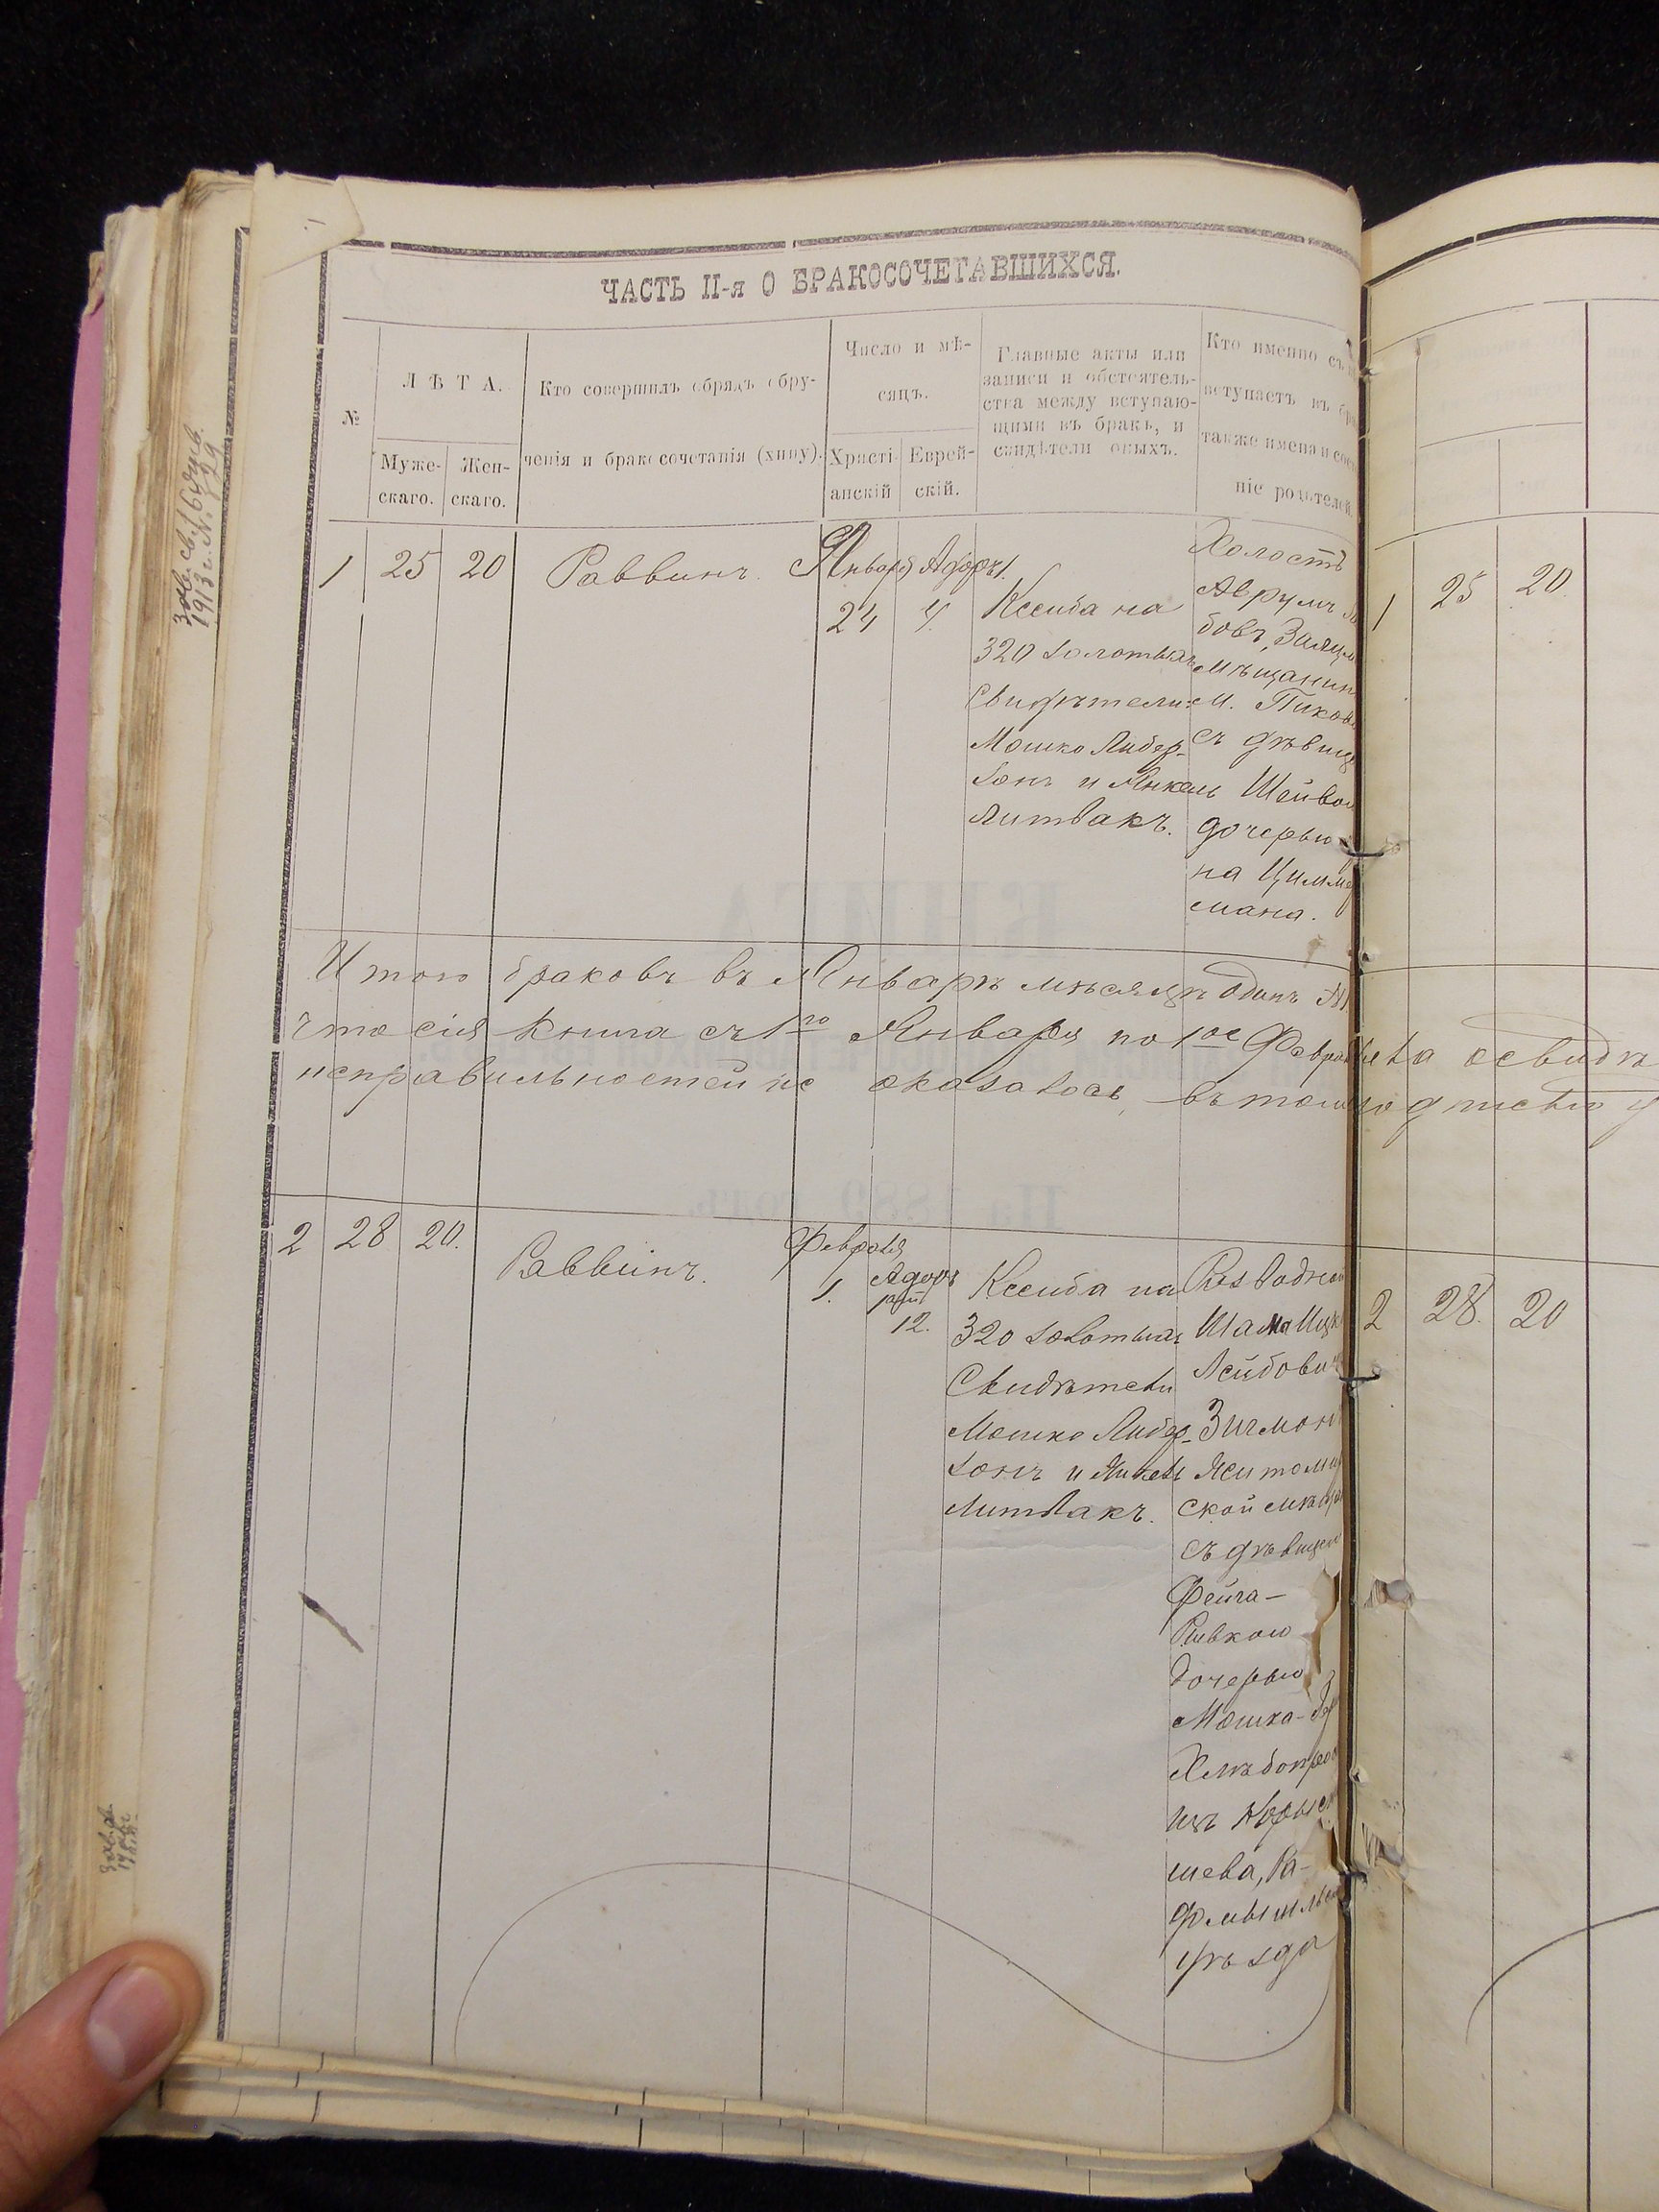 ЧАСТЬ II-я О БРАКОСОЧЕТАВШИХСЯ.
№
ЛѢТА.
Муже-
скаго.
Жен-
скаго.
Кто совершилъ обрядъ обру-
ченія и бракосочетанія (хипу).
Число и мѣ-
сяцъ.
Христі-
анскій
Еврей-
скій.
Главные акты или
записи и обстоятель-
ства между вступаю-
щими въ бракъ, и
свидѣтели оныхъ.
Кто именно съ
вступаетъ въ
также имена и сос
ніе родителей
1
25
20
Раввинъ.
Января
24
Адоръ
4
Ксиба на
320 золотыхъ
Свидѣтели:
Мошко Либер-
зонъ и Янкель
Литвакъ.
Холостъ
Аврумъ
бовъ,
Мѣщанин
м. Пиков
съ дѣвиц
Шейвой
дочерью
на Циммер
мана.
Итого браковъ въ Январѣ мѣсяцѣ одинъ №1
что сія книга съ 1го Января по 1ое Февра
неправильностей не оказалось, въ томъ
2
28
20.
Раввинъ.
Февраля
1.
Адоръ
12.
Ксиба на
320 золотыхъ
Свидѣтели
Мошко Либер-
зонъ и Янкель
Литвакъ.
Разводной
Шама Ицк
Лейбович
Зигмон
Житомир
ской
съ дѣвицей
Фейга-
Ривкою
дочерью
Мошка-
изъ
шева, Ра-
домысльск
уѣзда
1
25
20.
освидѣ
2
28.
20
1913 г. №